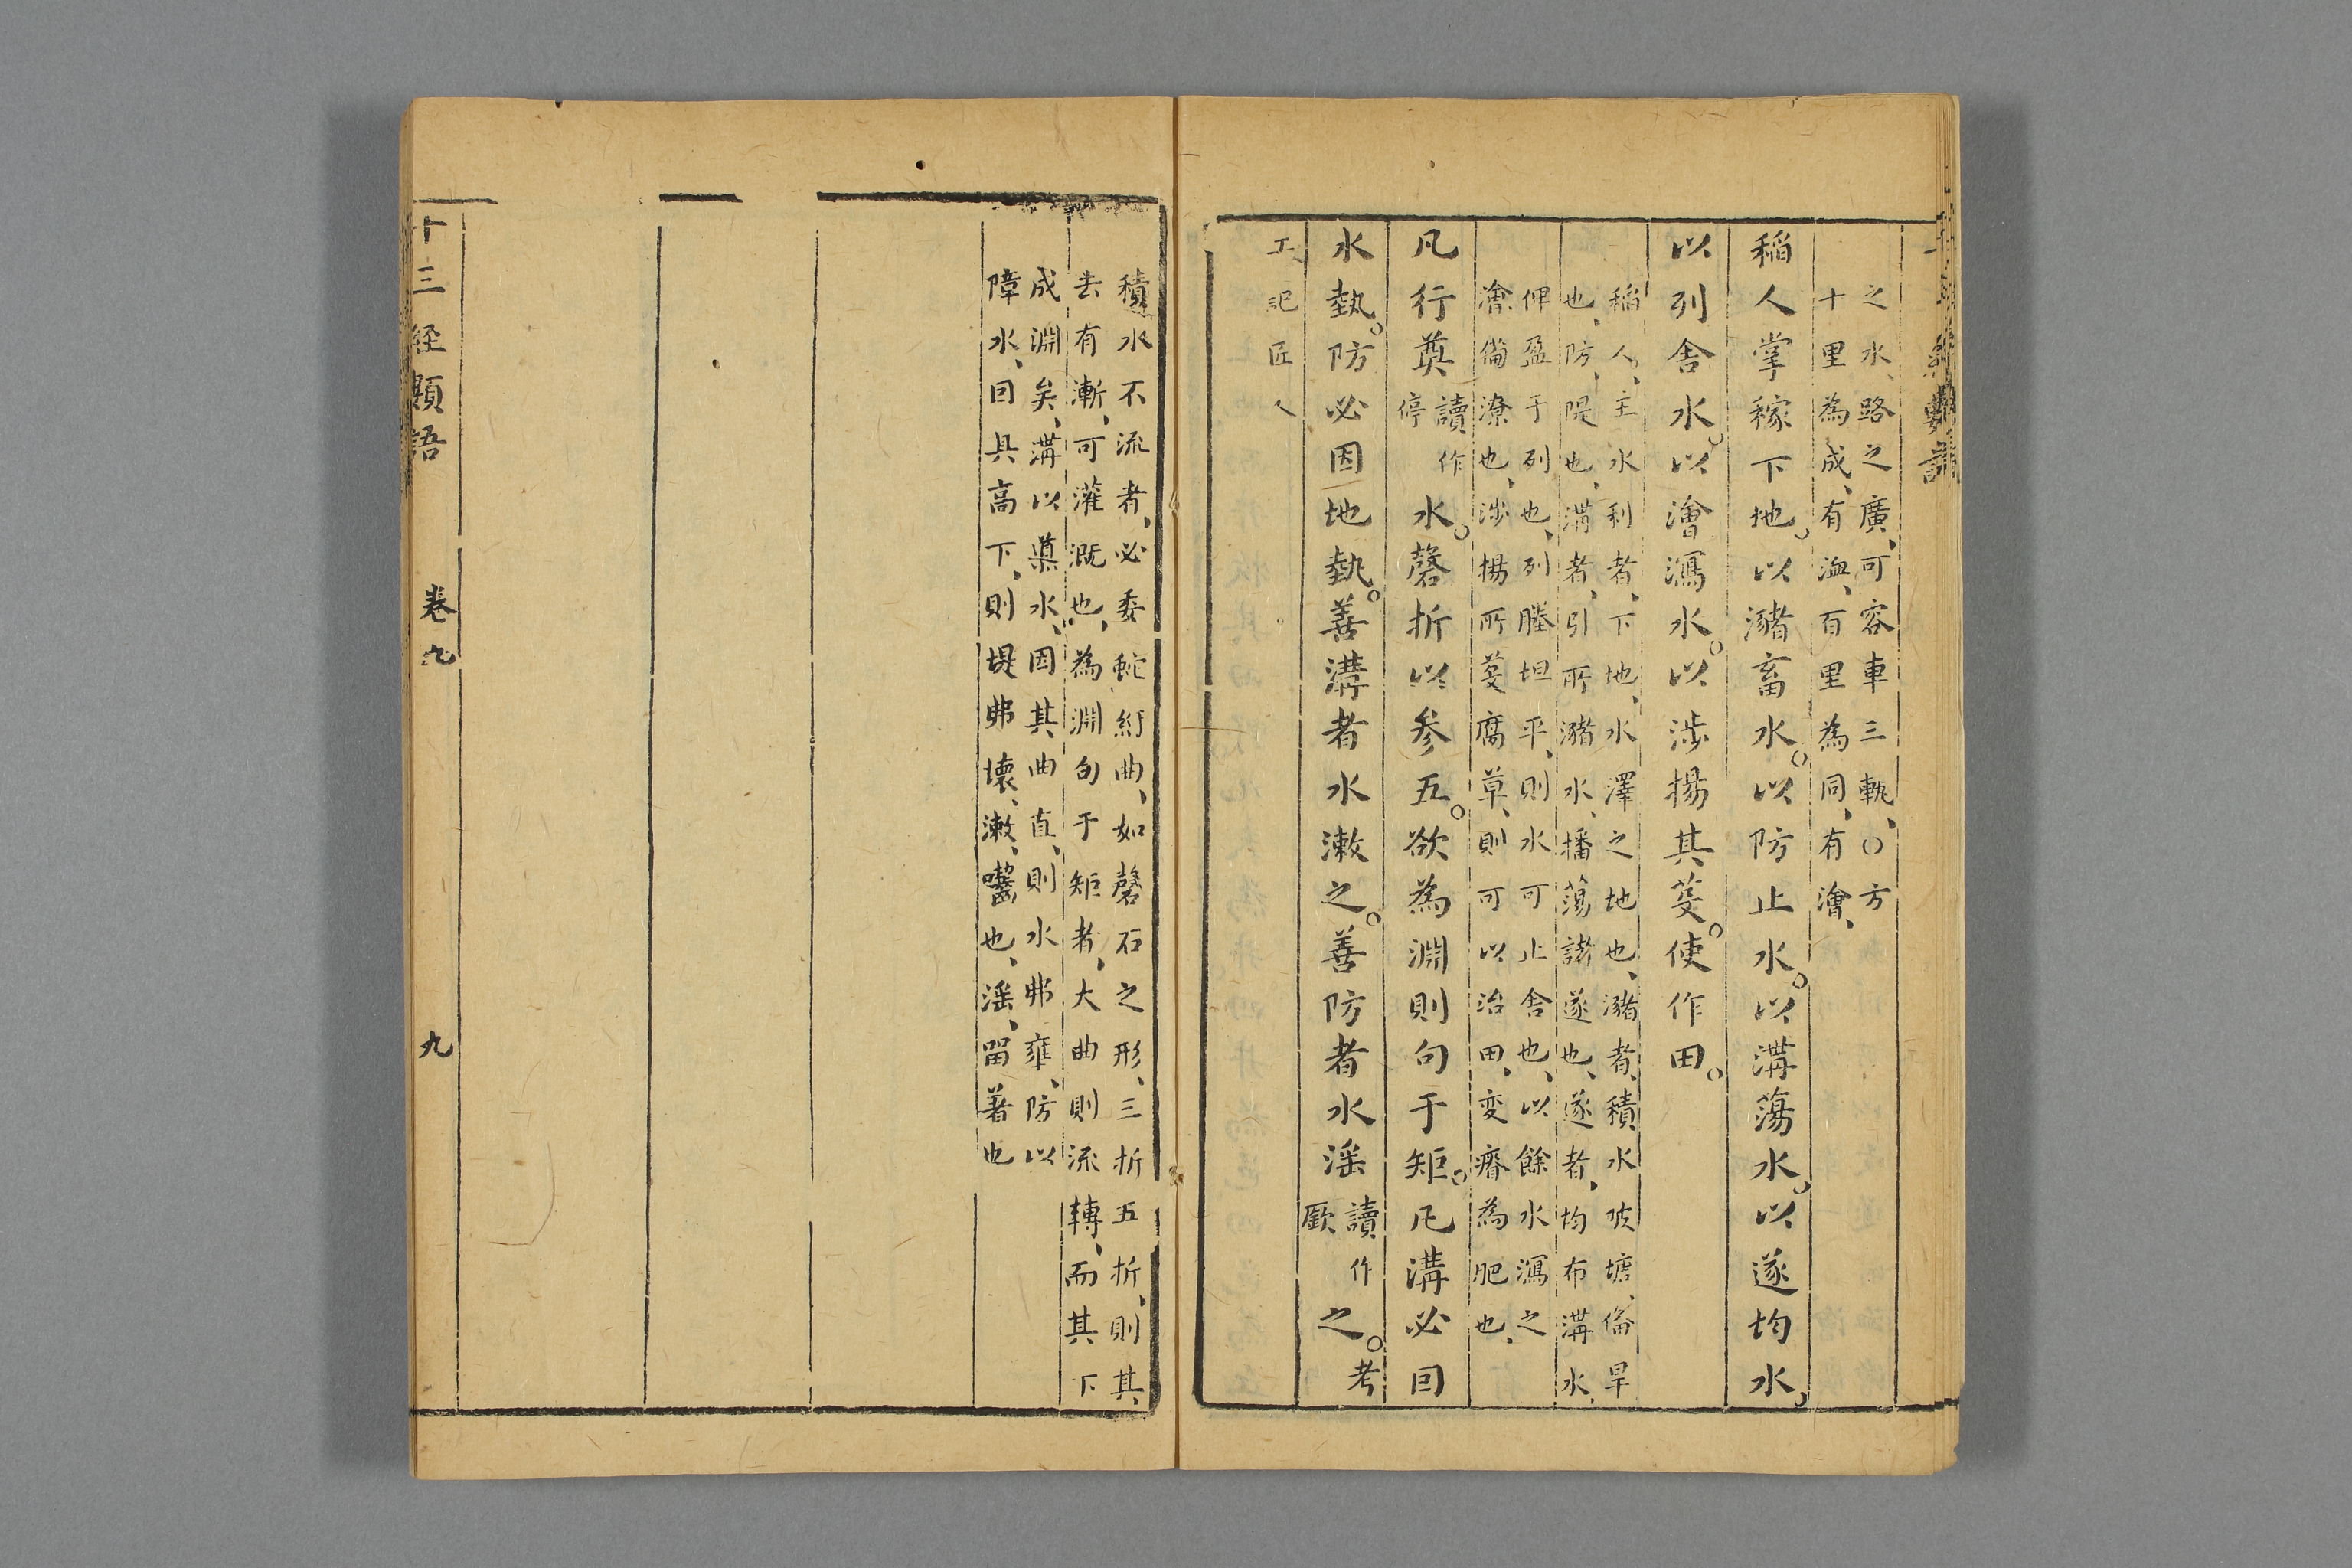 之水、路之廣、可容車三軌、〇方
十里為成、有洫、百里為同、有澮、
稲人掌稼下地。以瀦畜水。以防止水。以溝蕩水。以遂均水。
以列舎水。以澮瀉水。以渉揚其芟。使作田。
稲人、主水利者、下地、水澤之地也、瀦者、積水陂塘、俻旱
也、防、隄也、溝者、引所瀦水、播蕩諸遂也、遂者、均布溝水、
俾盈于列也、列塍坦平、則水可止舎也、以餘水瀉之
澮俻潦也、渉揚所芟腐草、則可以治田、変瘠為肥也、
凡行奠讀作停水。磬折以参五。欲為淵則句于矩。凡溝必因
水埶。防必因地埶。善溝者水漱之。善防者水淫讀作厭之。考
工記匠人
積水不流者、必委蛇紆曲、如磬石之形、三折五折、則其
去有漸、可灌漑也、為淵句于矩者、大曲則流轉、而其下
成淵矣、溝以導水、因其曲直、則水弗壅、防以
障水、因其高下、則堤弗壊、漱、囓也、淫、畱著也
十三経類語
卷九
九